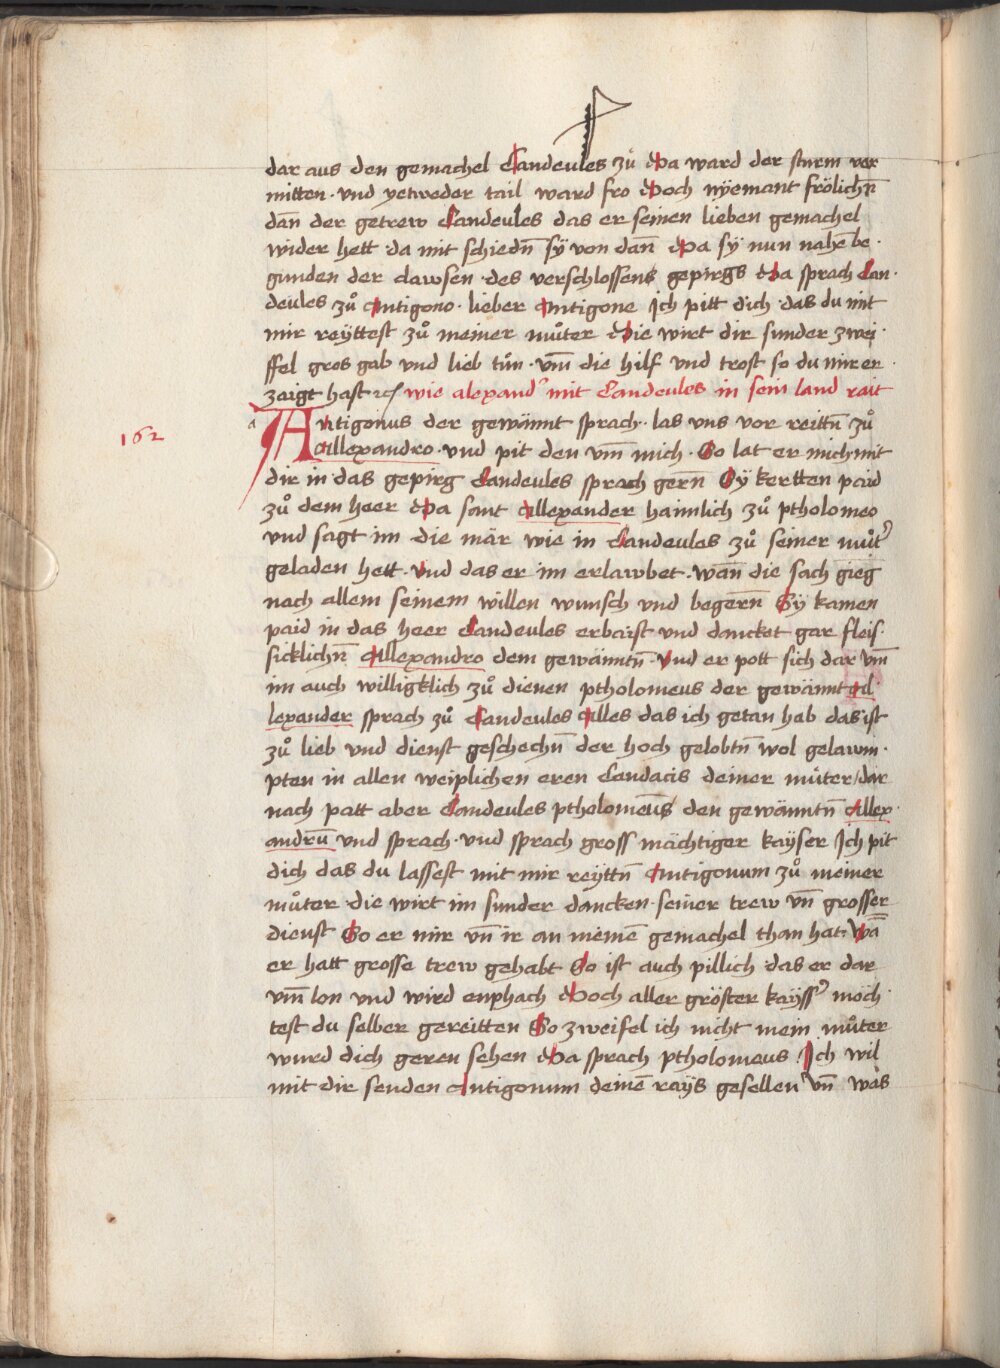 dar aus den gemachel Candeules zů Da ward der sturm ver
mitten · vnd yetweder tail ward fro Doch nÿemant frölichn̄
dan̄ der getrew Candeules das er seinen lieben gemachel
wider hett · da mit schiedn̄ sÿ von dan̄ Da sÿ nun nahē be·
gunden der clawsen · des verschlossens gepirgs Da sprach Can·
deules zů Antigono · lieber Antigone Ich pitt dich · das du mit
mir reÿttest zů meiner můter Die wirt dir sunder zwei·
ffel gros gab vnd lieb tůn · vm̄ die hilf vnd trost so du mir er·
zaigt hast ꝛc̄ wie alexand' mit Candeules in sein land rait
162
a
Antigonus der gewännt sprach · las vns vor reittn̄ zů
Allexandro · vnd pit den vm̄ mich · So lat er mich mit
dir in · das gepirg Candeules sprach gern̄ Sy kertten paid
zů dem heer Da sant Allexander haimlich zů ptholomeo
vnd sagt im die mär wie in Candeules zů seiner můt'
geladen hett · Vnd das er im erlawbet · wan̄ die sach gieg
nach allem seinem willen wunsch vnd begern̄ Sy kamen
paid in das heer Candeules erbaist vnd dancket gar fleis·
sicklichn̄ Allexandro dem gewänntn̄ · Vnd er pott sich dar vm̄
im auch willigklich zů dienen ptholomeus der gewännt Al·
lexander sprach zů Candeules Alles das ich getan hab das ist
zů lieb vnd dienst geschechn̄ der hoch gelobtn̄ wol gelawm·
pten in allen weiplichen eren Candacis deiner můter / dar
nach patt aber Candeules ptholomeus den gewänntn̄ Allex·
andrū vnd sprach · vnd sprach gross mächtiger kaÿser Ich pit
dich das du lassest mit mir reÿttn̄ Antigonum zů meiner
můter · die wirt im sunder dancken · seiner trew vn̄ grosser
dienst So er mir vn̄ ir an meinē gemachel than hat · Wā
er hatt grosse trew gehabt So ist auch pillich · das er dar
vm̄ lon vnd wird enphach Doch aller gröster kaÿss' moch·
test du selber gereitten So zweifel ich nicht mein můter
wurd dich geren sehen Da sprach ptholomeus / Ich wil
mit dir senden Antigonum deinē raÿs gesellen vn̄ was